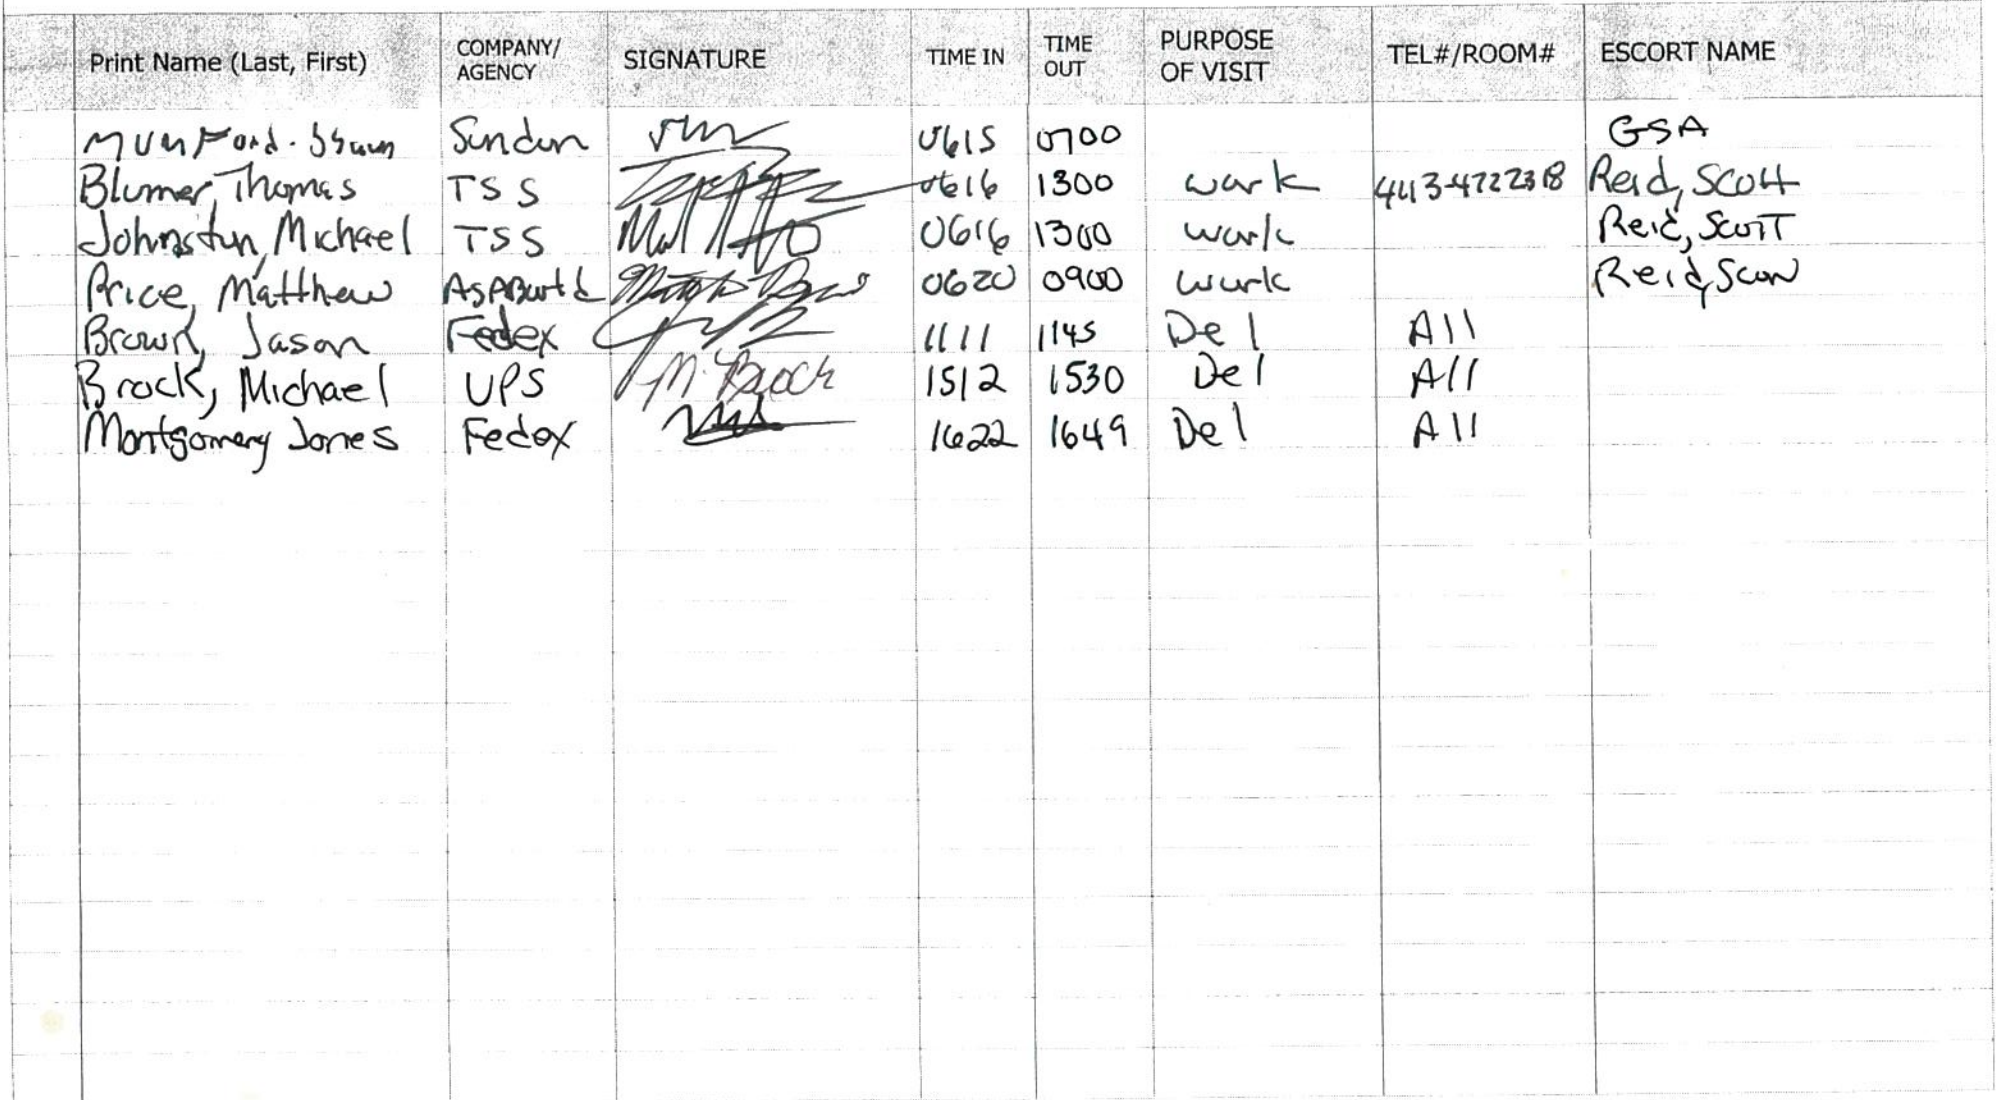 Print Name (Last, First) COMPANY/ AGENCY SIGNATURE TIME IN TIME OUT PURPOSE OF VISIT TEL#/ROOM# ESCORT NAME
MUMFord. 0615 0700 GSA
Blumer, Thomas TSS 0616 1300 work Reid, Scott
Johnston, Michael TSS 0616 1300 work Reid, Scott
Price, Matthew 0620 0900 work Reid, Scott
Brown, Jason Fedex 1111 1145 Del All
Brock, Michael UPS M. Brock 1512 1530 Del All
Montgomery Jones Fedex 1622 1649 Del All